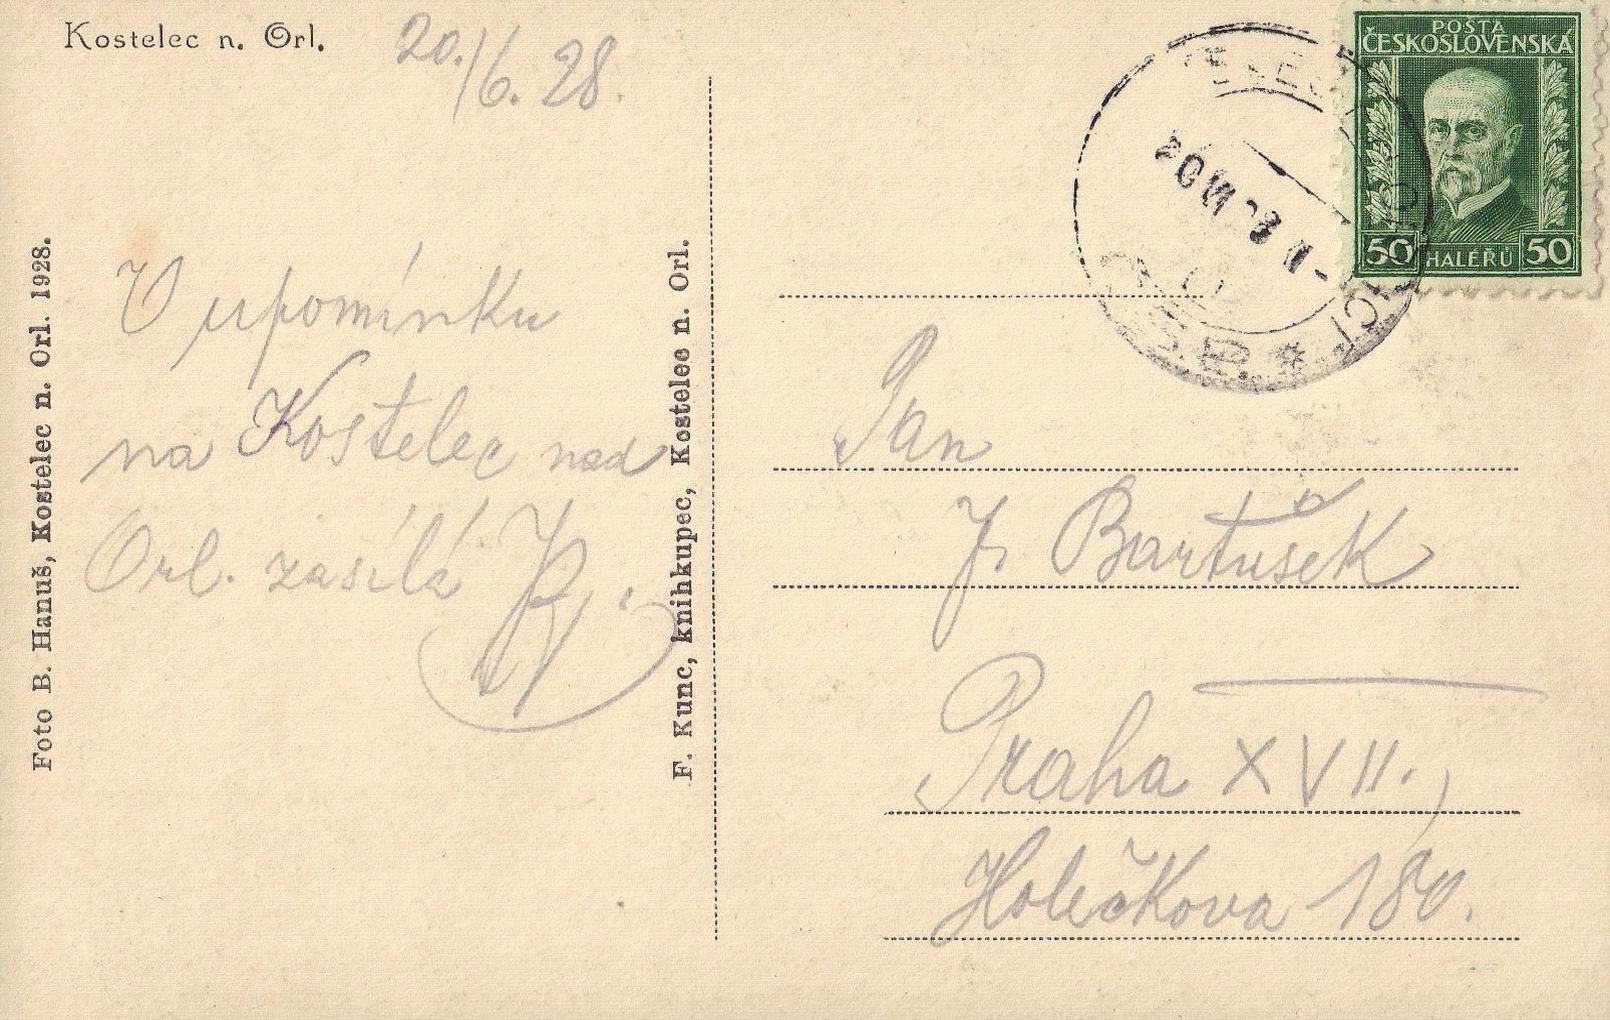 Kostelec n. Orl.
20./6. 28.
V upomínku
na Kostelec nad
Orl. zasílá
Foto B. Hanuš, Kostelec n. Orl. 1928.
F. Kunc, knihkupec, Kostelec n. Orl.
POŠTA
ČESKOSLOVENSKÁ
50 HALÉŘŮ 50
20 VI 28
Pan
J. Bartušek
Praha XVII.,
Holečkova 180.